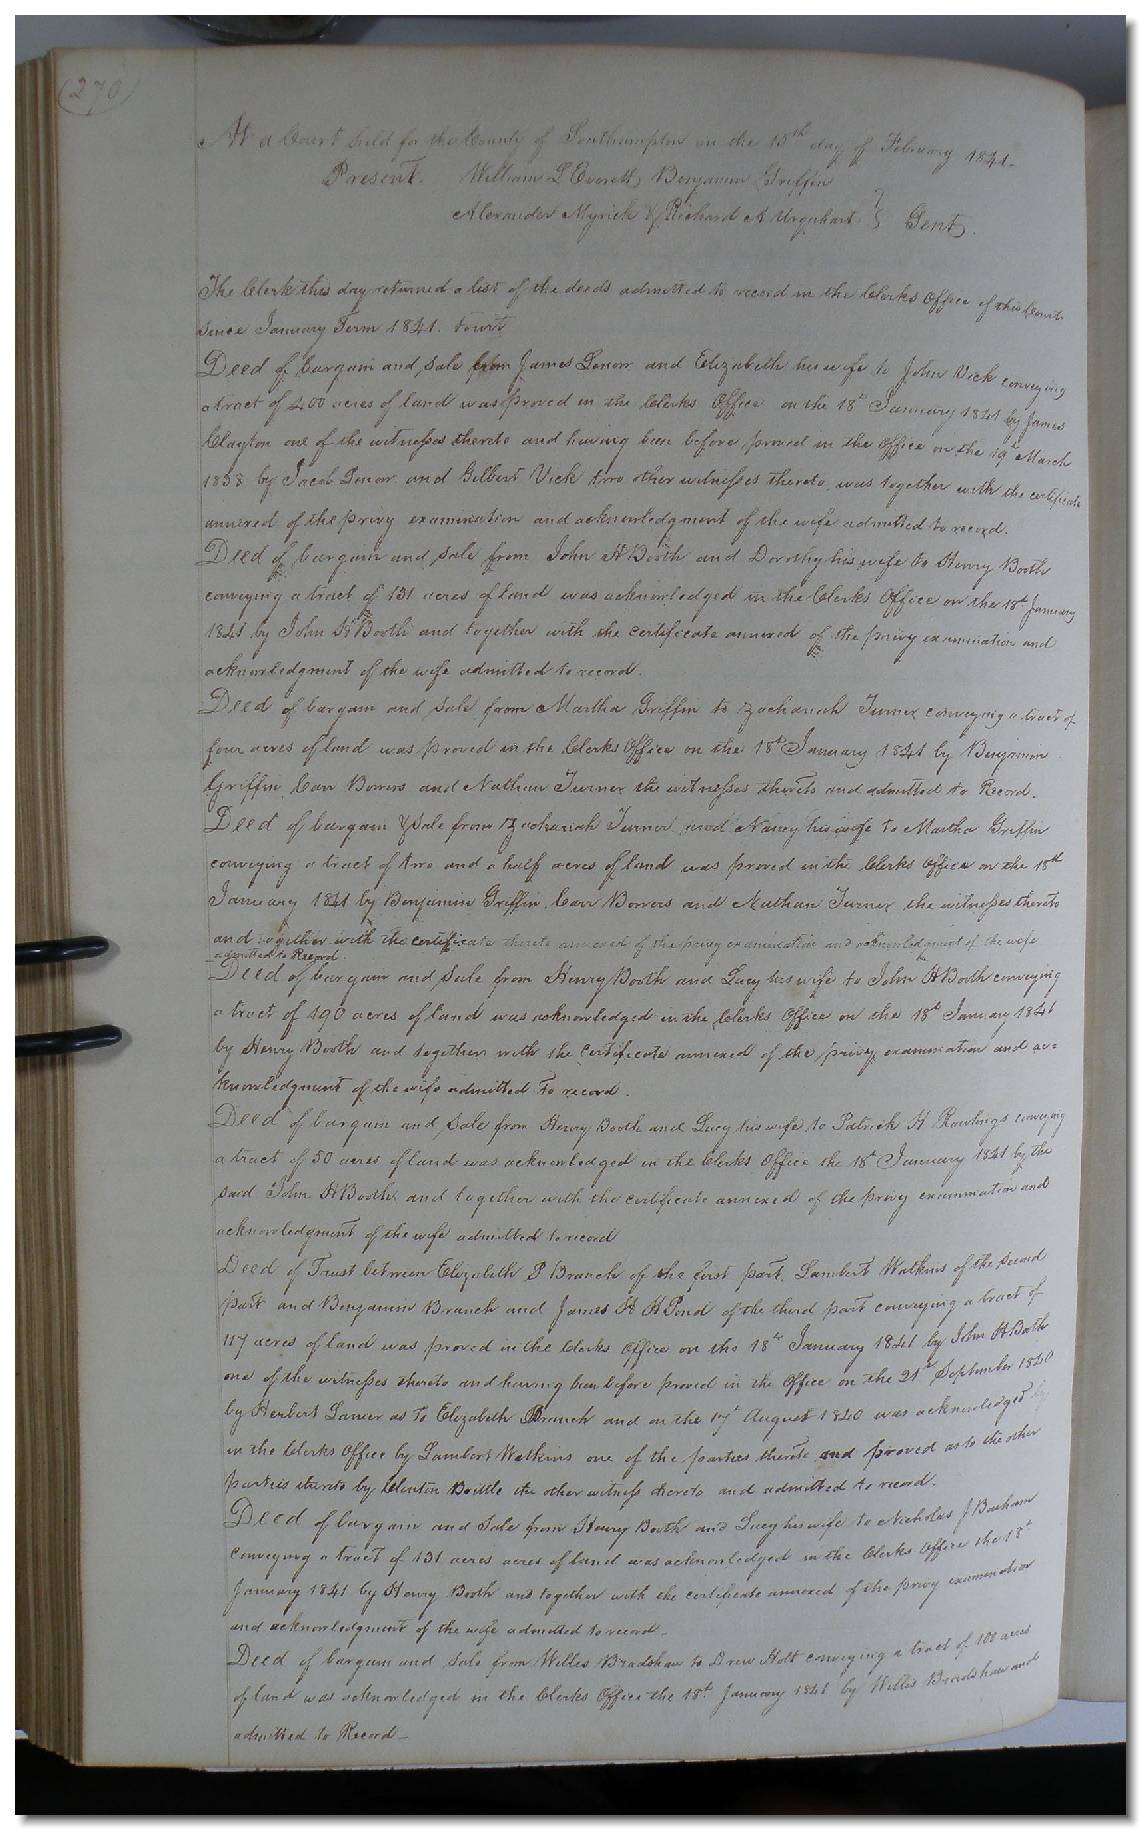 (270)
At a Court held for the County of Southampton on the 15th day of February 1841.
Present. William L Everett, Benjamin Griffin
Alexander Myrick & Richard A Urquhart } Gent.
The Clerk this day returned a list of the deeds admitted to record in the Clerks Office of this Court
since January Term 1841.
Deed of bargain and sale from James and Elizabeth his wife to John Vick conveying
a tract of 400 acres of land was proved in the Clerks Office on the 18th January 1841 by James
Clayton one of the witnesses thereto and having been before proved in the Office on the 19th March
1838 by Jacob and Gilbert Vick two other witnesses thereto, was together with the certificate
annexed of the privy examination and acknowledgment of the wife admitted to record.
Deed of bargain and sale from John H Booth and Dorothy his wife to Henry Booth
conveying a tract of 131 acres of land was acknowledged in the Clerks Office on the 18th January
1841 by John H Booth and together with the certificate annexed of the privy examination and
acknowledgment of the wife admitted to record.
Deed of bargain and sale from Martha Griffin to Zachariah Turner conveying a tract of
four acres of land was proved in the Clerks Office on the 18th January 1841 by Benjamin
Griffin, Carr Bowers and Nathan Turner the witnesses thereto and admitted to Record.
Deed of bargain & Sale from Zachariah Turner and Nancy his wife to Martha Griffin
conveying a tract of two and a half acres of land was proved in the Clerks Office on the 18th
January 1841 by Benjamin Griffin, Carr Bowers and Nathan Turner the witnesses thereto
and together with the certificate thereto annexed of the privy examination and acknowledgment of the wife
admitted to Record.
Deed of bargain and sale from Henry Booth and Lucy his wife to John H Booth conveying
a tract of 490 acres of land was acknowledged in the Clerks Office on the 18th January 1841
by Henry Booth and together with the certificate annexed of the privy examination and ac=
knowledgment of the wife admitted to record.
Deed of bargain and sale from Henry Booth and Lucy his wife to Patrick H Rawlings conveying
a tract of 50 acres of land was acknowledged in the Clerks Office the 18th January 1841 by the
said John H Booth and together with the certificate annexed of the privy examination and
acknowledgment of the wife admitted to record
Deed of Trust between Elizabeth P Branch of the first part, Lambert Watkins of the second
part and Benjamin Branch and James H H Pond of the third part conveying a tract of
117 acres of land was proved in the Clerks Office on the 18th January 1841 by John H Booth
one of the witnesses thereto and having been before proved in the Office on the 21st September 1840
by Herbert Lanier as to Elizabeth Branch and on the 17th August 1840 was acknowledged by
in the Clerks Office by Lambert Watkins one of the parties thereto and proved as to the other
parties thereto by Clinton Brittle the other witness thereto and admitted to record.
Deed of bargain and sale from Henry Booth and Lucy his wife to Nicholas J Barham
conveying a tract of 131 acres acres of land was acknowledged in the Clerks Office the 18th
January 1841 by Henry Booth and together with the certificate annexed of the privy examination
and acknowledgment of the wife admitted to record.
Deed of bargain and sale from Willis Bradshaw to Drew Holt conveying a tract of 100 acres
of land was acknowledged in the Clerks Office the 18th January 1841 by Willis Bradshaw and
admitted to Record.